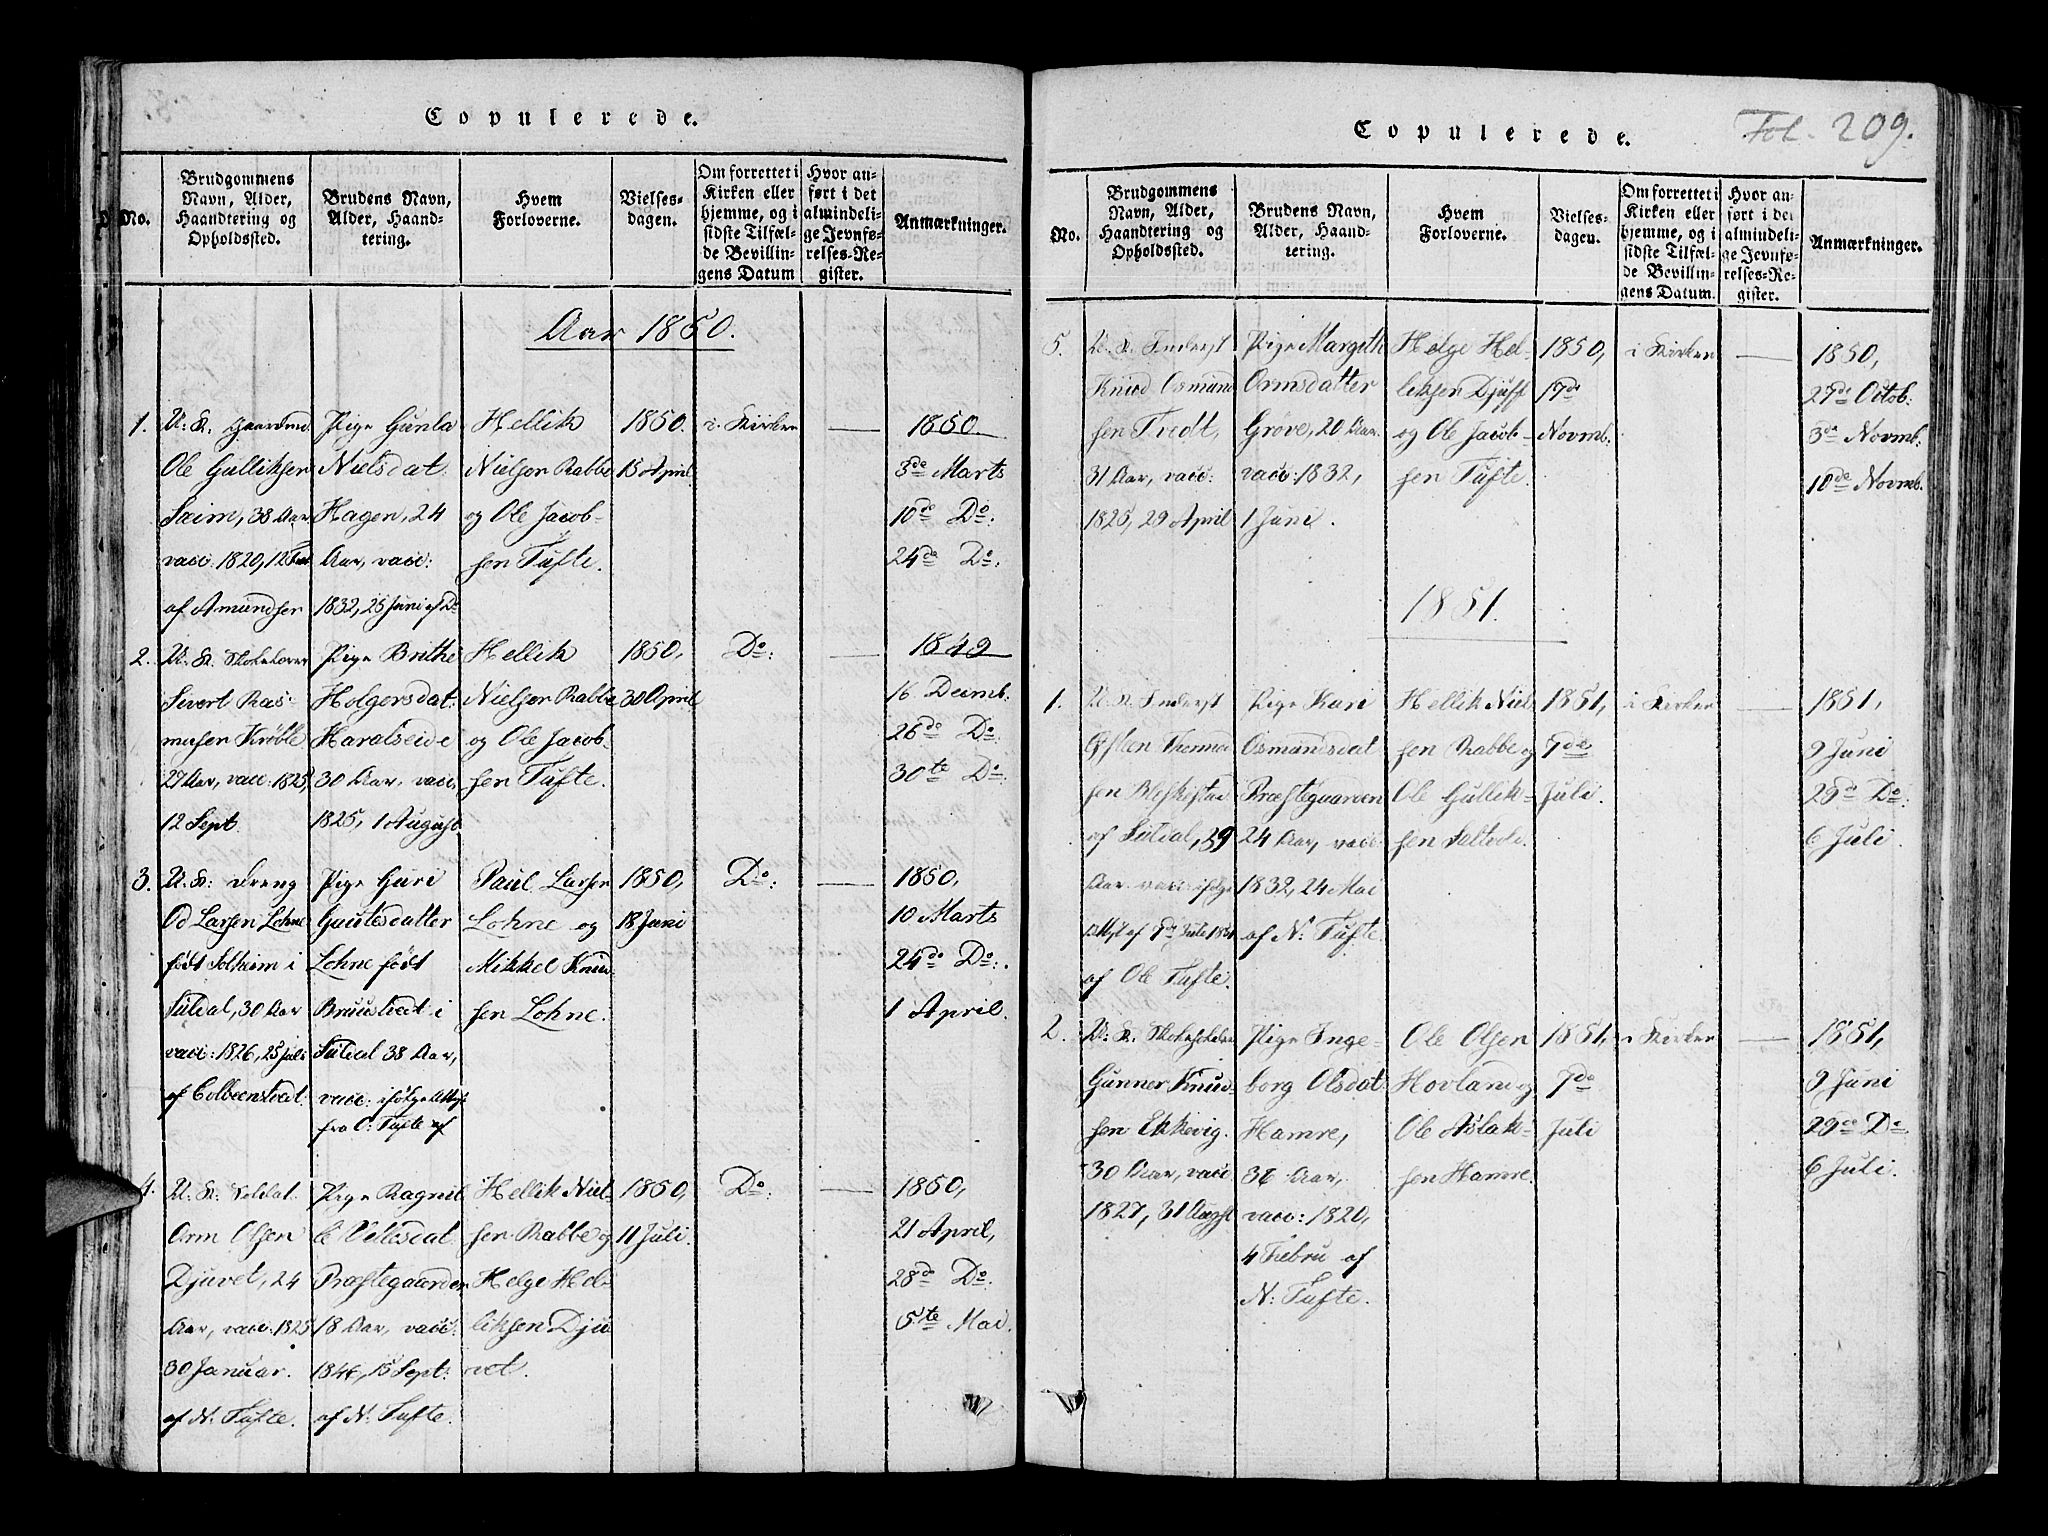 Copulerede.
No.
Brudgommens
Navn, Alder,
Haandtering og
Opholdssted.
Brudens Navn,
Alder, Haand-
tering.
Hvem
Forloverne.
Vielses-
dagen.
Om forrettet i
Kirken eller
hjemme, og i
sidste Tilfæl-
de Bevillin-
gens Datum
Hvor an-
ført i det
almindeli-
ge Jevnfø-
relses-Re-
gister.
Anmærkninger.
Aar 1850.
1.
U: K. Gaardmd
Ole Gulliksen
Seim, 38 Aar
vacc: 1820, 12
af Amundsen
Pige Gunla
Nielsdat:
Hagen, 24
Aar, vacc:
1832, 25 Juni af Do
Hellik
Nielsen Rabbe
og Ole Jacob-
sen Tufte.
1850.
15 April
i Kirken
1850
3de Marts
10de Do:
24de Do:
2.
U: K.
Sivert Ras-
musen Krøble
29 Aar, vacc: 1825,
12 Sept.
Pige Brithe
Holgersdat:
Haralseide
30 Aar, vacc,
1825, 1 August
Hellik
Nielsen Rabbe
og Ole Jacob-
sen Tufte.
1850,
30 April
Do:
1849
16 Decmb.
26de Do:
30te Do:
3.
U: K: Dreng
Od Larsen Lohne
født Solheim i
Suldal, 30 Aar
vacc: 1826, 25 Juli
af Colbeenstvedt.
Pige Guri
Gautesdatter
Lohne født
Bruustvedt i
Suldal 38 Aar,
vacc: ifølge Attest
fra O: Tufte af
Paul Larsen
Lohne og
Mikkel Knud-
sen Lohne.
1850,
18 Juni
Do:
1850,
10 Marts
24de Do:
1 April.
4.
U: K: Soldat
Orm Olsen
Djuvet, 24
Aar, vacc: 1825
30 Januar.
af N: Tufte.
Pige Ragnil
de Vetlesdat
Præstegaarden
18 Aar, vacc:
1846, 15 Sept:
af N: Tufte.
Hellik Niel-
sen Rabbe og
Helge Hel-
liksen Dju
vet.
1850,
11 Juli.
Do:
1850,
21 April,
28de Do:
5te Mai.
Copulerede.
Fol. 209.
No.
Brudgommens
Navn, Alder,
Haandtering og
Opholdssted.
Brudens Navn,
Alder, Haand-
tering.
Hvem
Forloverne.
Vielses-
dagen.
Om forrettet i
Kirken eller
hjemme, og i
sidste Tilfæl-
de Bevillin-
gens Datum.
Hvor an-
ført i det
almindeli-
ge Jevnfø-
relses-Re-
gister.
Anmærkninger.
5.
U: K. Inderst
Knud Osmund
sen Tvedt,
31 Aar, vacc:
1825, 29 April
Pige Margith
Ormsdatter
Grøve, 20 Aar.
vacc: 1832,
1 Juni.
Helge Hel-
liksen Djuff
og Ole Jacob-
sen Tufte.
1850,
17de
Novmb:
i Kirken
1850,
27de Octob:
3de Novmb:
10de Novmb.
1851.
1.
U: K. Inderst
Østen
sen
af Suldal, 39
Aar vacc: ifølge
Attest af 7de Juli 1851
af Ole Tufte.
Pige Kari
Osmundsdat
Præstegaarden
24 Aar, vacc:
1832, 24 Mai
af N: Tufte.
Hellik Niel
sen Rabbe og
Ole Gullik-
sen
1851,
7de
Juli.
i Kirken
1851,
9 Juni
29de Do:
6 Juli.
2.
U: K.
Gunner Knud-
sen Ekkevig.
30 Aar, vacc
1827, 31 Augst
Pige Inge-
borg Olsdat
Hamre,
36 Aar,
vacc: 1820,
4 Febru af
N: Tufte.
Ole Olsen
Hovland og
Ole Aslak-
sen Hamre.
1851,
7de
Juli
i Kirken
1851,
9 Juni
29de Do:
6 Juli.